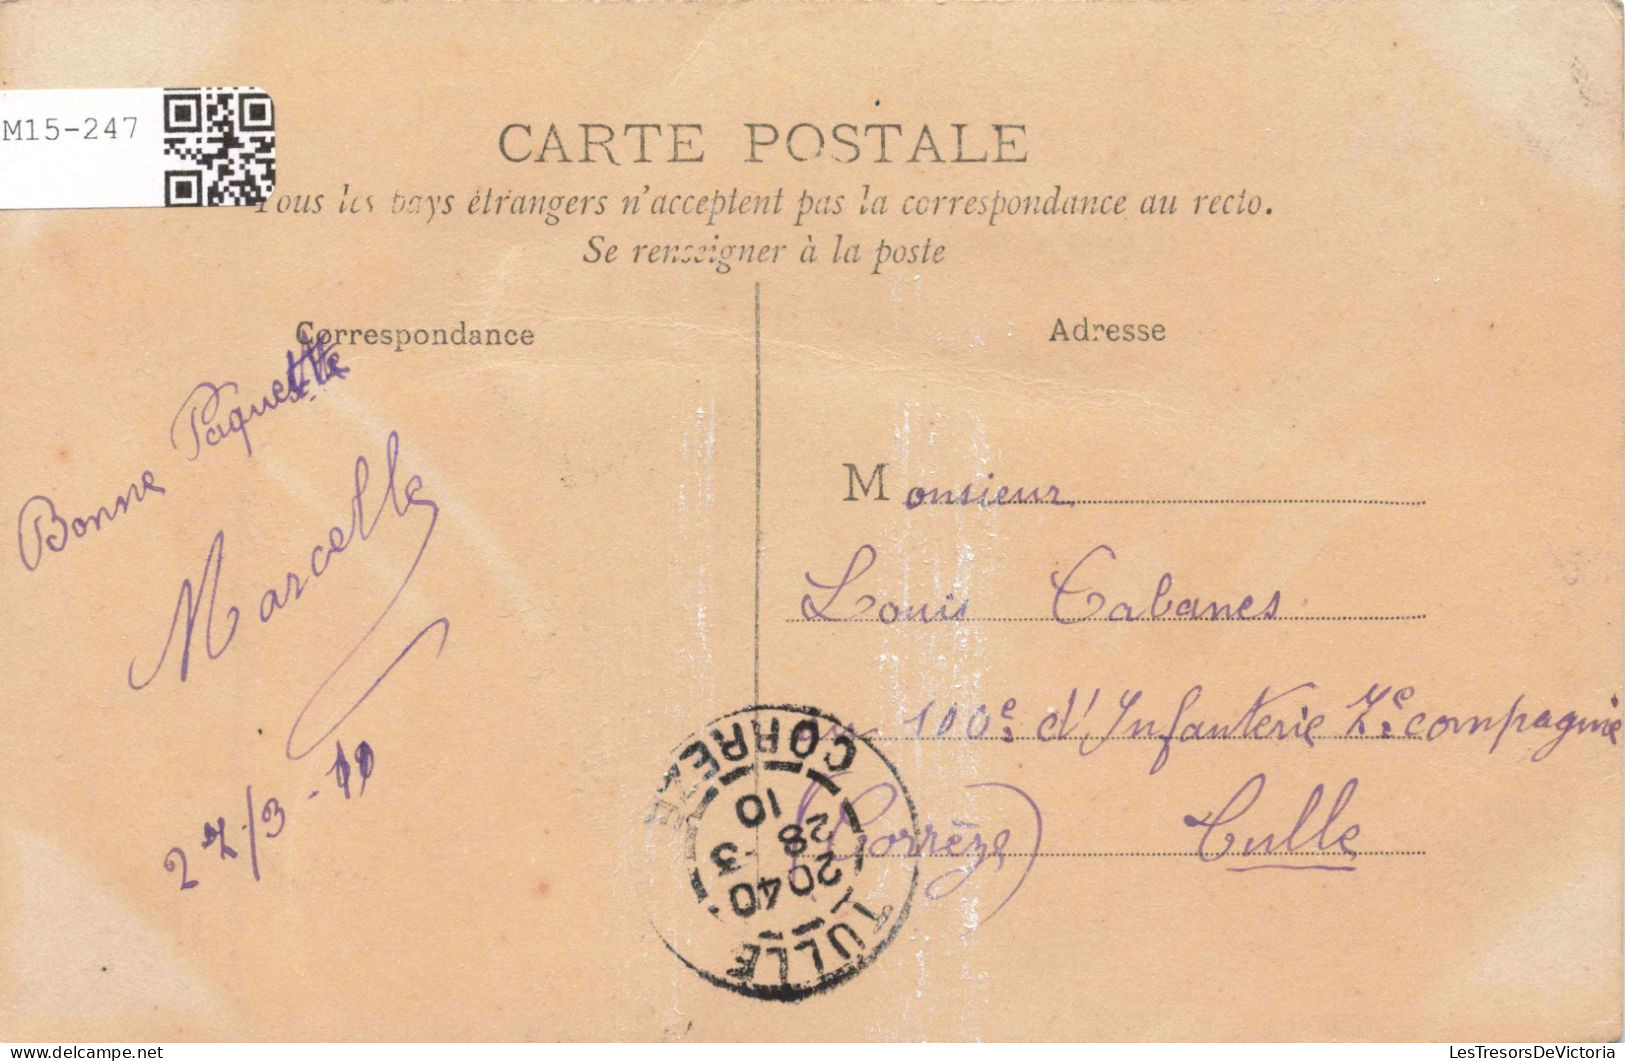 M15-247
CARTE POSTALE
Tous les pays étrangers n'acceptent pas la correspondance au recto.
Se renseigner à la poste
Correspondance
Bonne Paquette
Marcelle
27/3-10
Adresse
Monsieur
Louis Cabanes
au 100e d'Infanterie 7e compagnie
(Corrèze) Tulle
TULLE
20 40
28 -3
10
CORREZE
LesTresorsDeVictoria